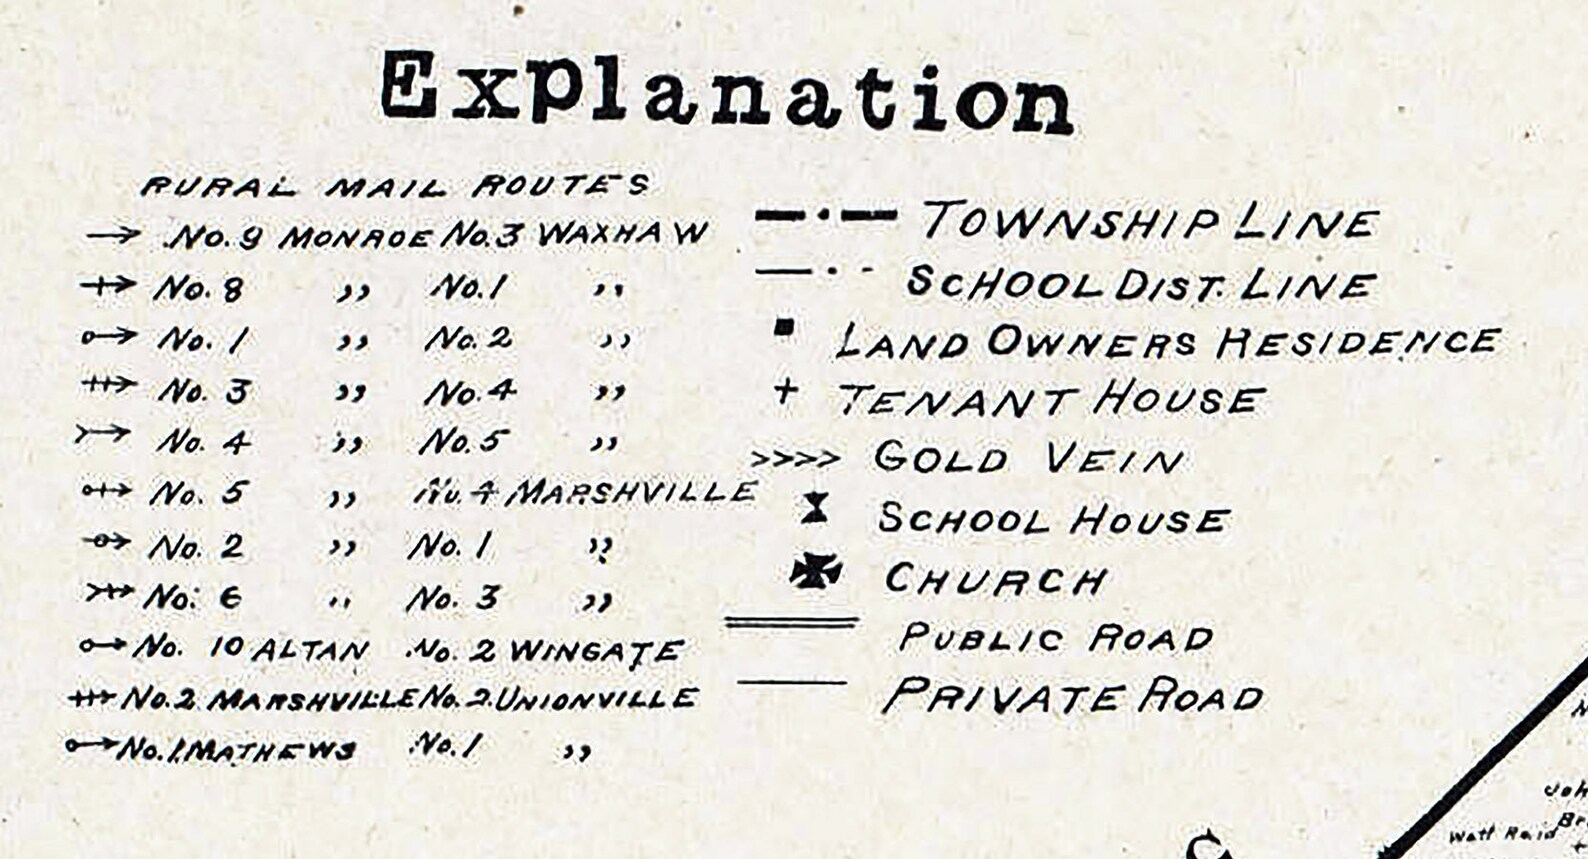 Explanation
RURAL MAIL ROUTES
No. 9 MONROE No. 3 WAXHAW
No. 8 ,, No. 1 ,,
No. 1 ,, No. 2 ,,
No. 3 ,, No. 4 ,,
No. 4 ,, No. 5 ,,
No. 5 ,, No. 4 MARSHVILLE
No. 2 ,, No. 1 ,,
No. 6 ,, No. 3 ,,
No. 10 ALTAN No. 2 WINGATE
No. 2 MARSHVILLE No. 2 UNIONVILLE
No. 1 MATHEWS No. 1 ,,
TOWNSHIP LINE
SCHOOL DIST. LINE
LAND OWNERS RESIDENCE
TENANT HOUSE
GOLD VEIN
SCHOOL HOUSE
CHURCH
PUBLIC ROAD
PRIVATE ROAD
Watt Reid